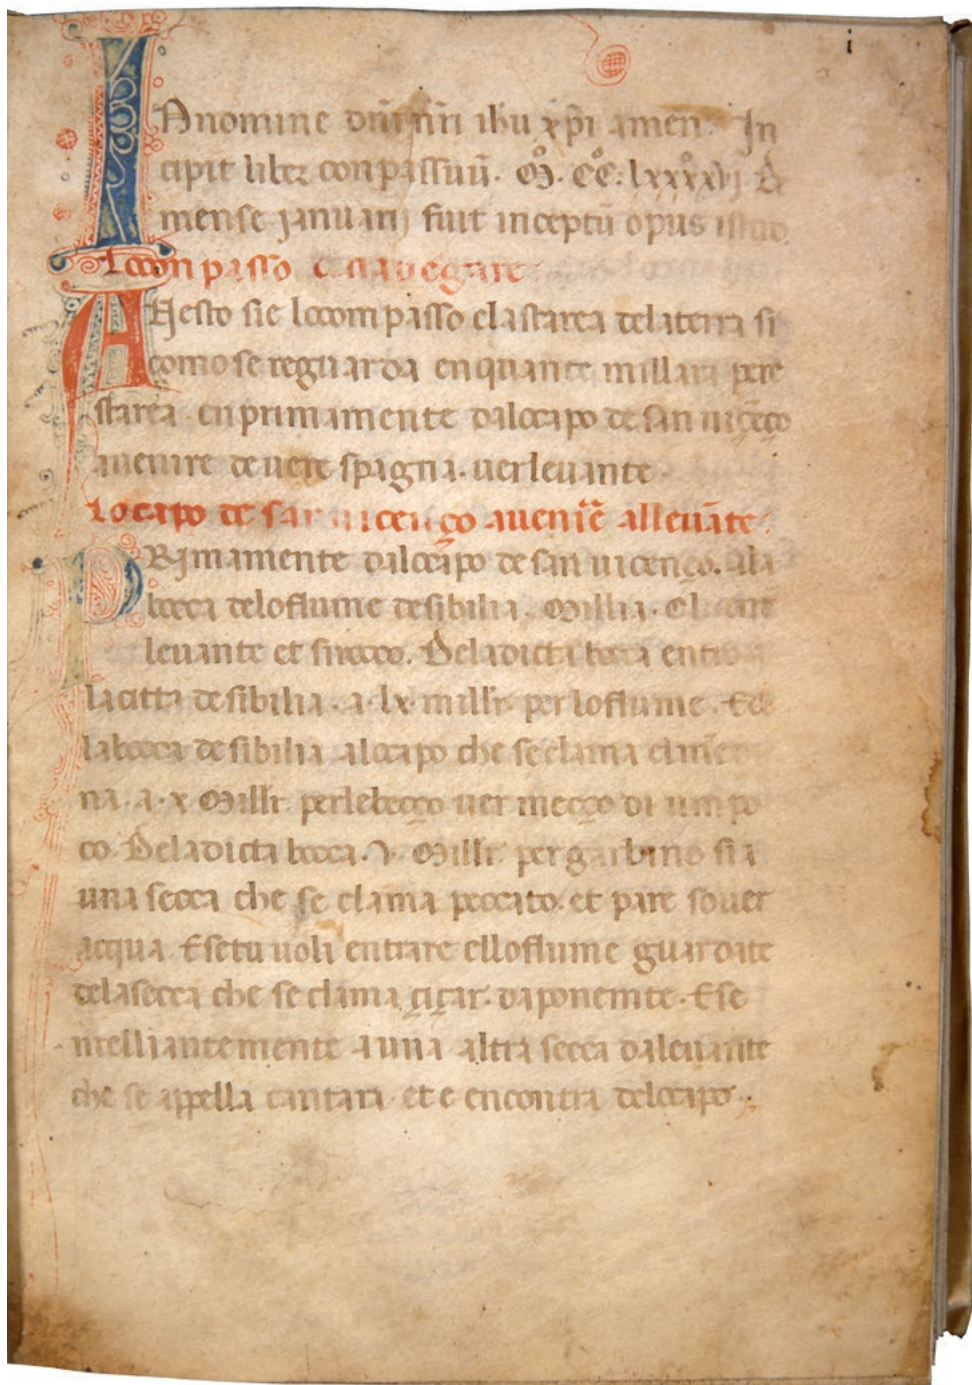 i
IN nomine dñi nr̄i ihu xp̄i amen. In
cipit liber conpassuū. M°. CC°. lxxxxvj. De
mense januarij fuit inceptū opus istud
Lo compasso de navegare
AQesto sie locompasso elastarea delaterra si
como se reguarda en quante millara per e
starea en primamente dalocapo de san viçēço
avenire de vere spagna. ver levante
Lo capo de san vicenço avenire allevāte.
PRimamente dalocapo de san vicenço. ala
bocca delo flume de sibilia. Millia. CL. entre
levante et sirocco. Dela dicta bocca entro a
la citta de sibilia. a. lx. millr. per lo flume. E de
la bocca de sibilia alocapo che se clama
na. a. x Millr. per lebecço ver mecço di um po
co. Dela dicta bocca. v. Millr. per garbino si a
una secca che se clama peccato. et pare sover
acqua. E se tu voli entrare ello flume guardate
dela secca che se clama çiçar. da ponemte. E se
melliantemente a una altra secca da levante
che se appella cantara. et e encontra delocapo.